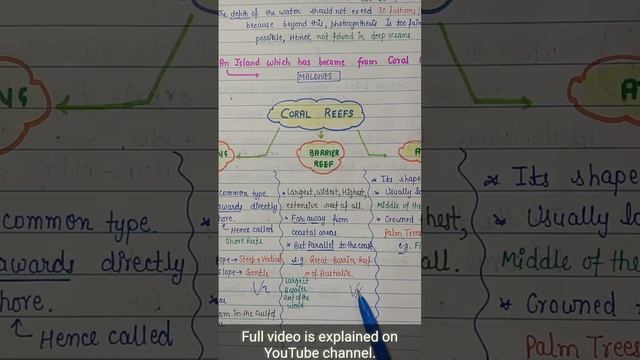 The depth of the water should not exeed 30 fathoms/
because beyond this, photosynthesis is too fain
possible, Hence, not found in deep oceans.
An Island which has become from Coral
MALDIVES
CORAL REEFS
BARRIER
REEF
common type.
awards directly
hore.
Hence called
Shore Reefs
slope → Steep + Vertical
slope → Gentle
am in the Gulf of
Largest, Widest, Highest,
extensive reef of all.
Far away from
coastal areas
But Parallel to the coast
e.g. Great Barrier Reef
of Australia.
Largest
Barrier
Reef of the
World
Its shape
Usually lo
Middle of the
Crowned
Palm Trees
e.g. Fi
NG
common type.
awards directly
hore.
Hence called
A
Its shape
hest,
Usually lo
all.
Middle of the
Crowned
Palm Trees
Full video is explained on
YouTube channel.